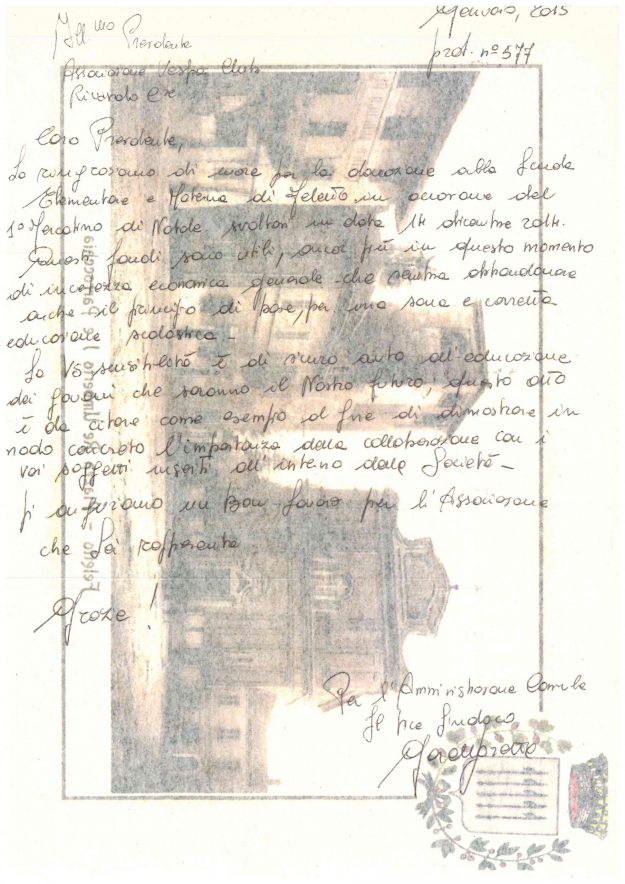 Gennaio, 2015
Ill.mo Presidente
prot. n° 577
Associazione Vespa Club
Riccardo
Caro Presidente,
La ringraziamo di cuore per la donazione alla Scuola
Elementare e Materna di Feletto in occasione del
1° Mercatino di Natale svoltosi in data 14 dicembre 2014.
Questi fondi sono utili, ancor più in questo momento
di incertezza economica generale che sembra abbandonare
anche il principio di base, per una sana e corretta
educazione scolastica -
La Vs sensibilità è di sicuro aiuto all'educazione
dei giovani che saranno il Nostro futuro, questo atto
è da citare come esempio al fine di dimostrare in
modo concreto l'importanza della collaborazione con i
vari soggetti inseriti all'interno della Società -
Vi auguriamo un Buon Lavoro per l'Associazione
che Lei rappresenta
Grazie !
Per l'Amministrazione Com.le
Il Vice Sindaco
Feletto - Piazza Parrocchia